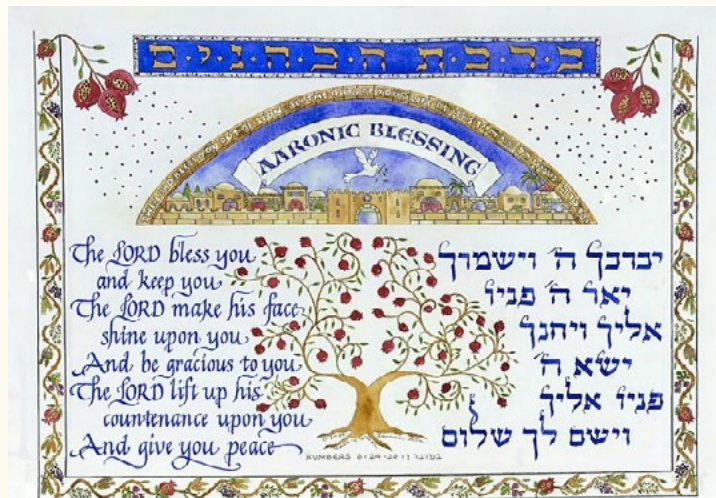 ברכת הכהנים
AARONIC BLESSING
The LORD bless you
and keep you
The LORD make his face
shine upon you
And be gracious to you
The LORD lift up his
countenance upon you
And give you peace
יברכך ה' וישמרך
יאר ה' פניו
אליך ויחנך
ישא ה'
פניו אליך
וישם לך שלום
NUMBERS 6:24-26 במדבר ו